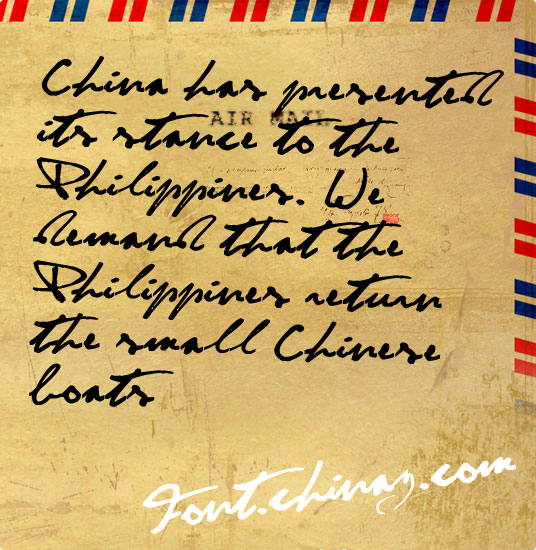 China has presented
AIR MAIL
its stance to the
Philippines. We
demand that the
Philippines return
the small Chinese
boats
Font.chinaz.com